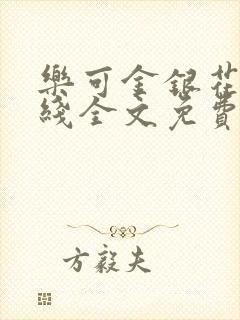 樂可金銀花
綫全文免費
方毅夫